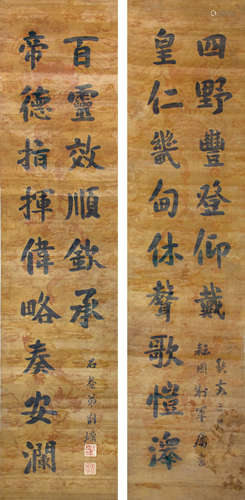 四野豐登仰戴
皇仁幾甸休聲歌愷澤
百靈效順欽承
帝德指揮偉略奏安瀾